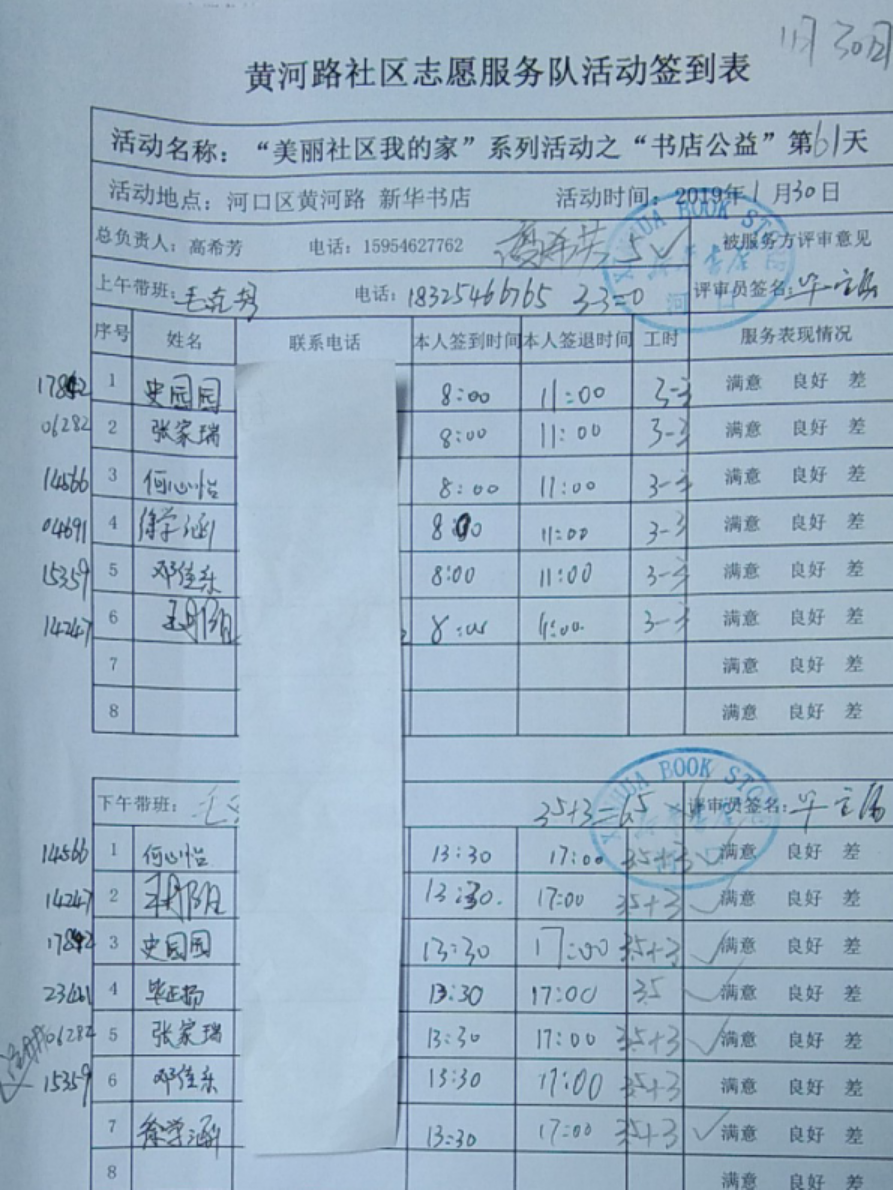 1月30日
黄河路社区志愿服务队活动签到表
活动名称：“美丽社区我的家”系列活动之“书店公益”第61天
活动地点：河口区黄河路 新华书店 活动时间：2019年1月30日
总负责人：高希芳 电话：15954627762 5✓ 被服务方评审意见
上午带班： 电话：18325466765 3-3=0 评审员签名：
序号 姓名 联系电话 本人签到时间 本人签退时间 工时 服务表现情况
1 史园园 8:00 11:00 3-3 满意 良好 差
06282 2 张家瑞 8:00 11:00 3-3 满意 良好 差
14566 3 何心怡 8:00 11:00 3-3 满意 良好 差
04691 4 徐学涵 8:00 11:00 3-3 满意 良好 差
15359 5 邓佳乐 8:00 11:00 3-3 满意 良好 差
14247 6 8:00 11:00 3-3 满意 良好 差
7 满意 良好 差
8 满意 良好 差
XINHUA BOOK STO
下午带班： 3.5+3=6.5 评审员签名：
14566 1 何心怡 13:30 17:00 3.5+3 ✓ 满意 良好 差
14247 2 13:30. 17:00 3.5+3 ✓ 满意 良好 差
3 史园园 13:30 17:00 3.5+3 ✓ 满意 良好 差
23461 4 毕正扬 13:30 17:00 3.5 ✓ 满意 良好 差
06282 5 张家瑞 13:30 17:00 3.5+3 ✓ 满意 良好 差
15359 6 邓佳乐 13:30 17:00 3.5+3 满意 良好 差
7 徐学涵 13:30 17:00 3.5+3 ✓ 满意 良好 差
8 满意 良好 差